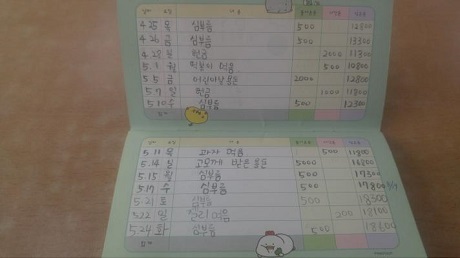 날짜 요일 내용
4.25 목 심부름 500 12800
4.26 금 심부름 500 13300
4.28 일 헌금 2000 11300
5.1 월 먹음 500 10800
5.5 금 어린이날 용돈 2000 12800
5.7 일 헌금 1000 11800
5.10 수 심부름 500 12300
5.11 목 과자 먹음 500 11800
5.14 일 고모께 받은 용돈 5000 16800
5.15 월 심부름 500 17300
5.17 수 심부름 500 17800
5.21 토 심부름 500 18300
5.22 일 젤리 먹음 200 18100
5.24 화 심부름 500 18600